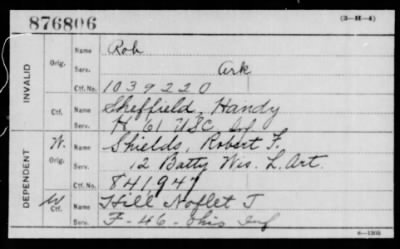 876806
(3-H-4)
INVALID
Orig.
Name Rob
Serv. Ark
Ctf. No. 1039220
Ctf.
Name Sheffield, Handy
Serv. H 61 USC Inf
DEPENDENT
W. Orig.
Name Shields, Robert F.
Serv. 12 Batty Wis. L. Art.
Ctf. No. 841947
W Ctf.
Name Hill Noflet T
Serv. F-46-Ohio Inf
6-1305